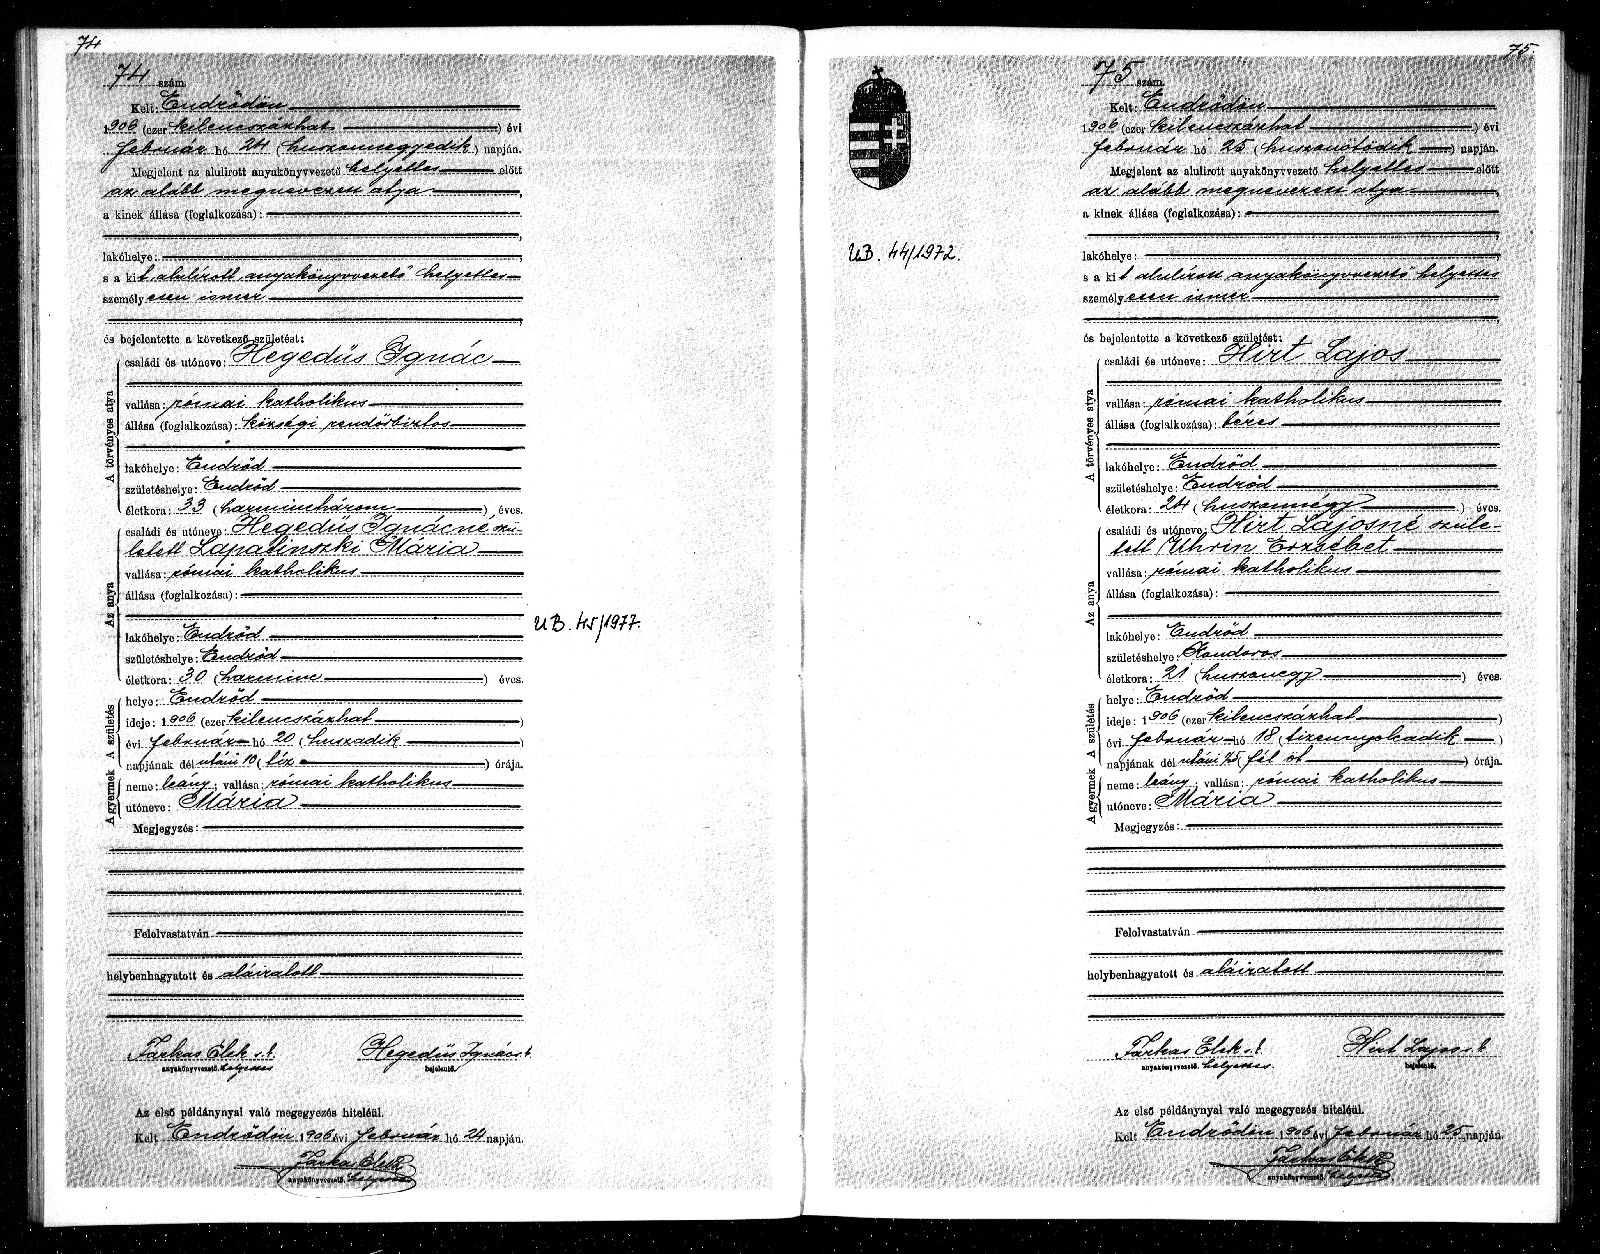 74
74 szám.
Kelt: Endrődön
1906 (ezer kilencszázhat ) évi
február hó 24 (huszonnegyedik ) napján.
Megjelent az alulirott anyakönyvvezető helyettes előtt
az alább megnevezett atya ,
a kinek állása (foglalkozása):
lakóhelye:
s a kit alulírott anyakönyvvezető helyettes
személyesen ismer
és bejelentette a következő születést:
A törvényes atya
családi és utóneve: Hegedüs Ignác
vallása: római katholikus
állása (foglalkozása): községi rendőrbiztos
lakóhelye: Endrőd
születéshelye: Endrőd
életkora: 33 (harminchárom ) éves.
Az anya
családi és utóneve: Hegedüs Ignácné szü-
letett Lapatinszki Mária
vallása: római katholikus
állása (foglalkozása):
lakóhelye: Endrőd
születéshelye: Endrőd
életkora: 30 (harminc ) éves.
A születés
helye: Endrőd
ideje: 1906 (ezer kilencszázhat )
évi február hó 20 (huszadik )
napjának dél utáni 10 (tíz ) órája.
A gyermek
neme: leány; vallása: római katholikus
utóneve: Mária
Megjegyzés:
Felolvastatván
helybenhagyatott és aláiratott
Farkas Elek s. k. Hegedüs Ignác s. k.
anyakönyvvezető helyettes bejelentő.
Az első példánynyal való megegyezés hiteléül.
Kelt Endrődön 1906 évi február hó 24 napján.
Farkas Elek
anyakönyvvezető helyettes
UB. 45/1977.
75.
75 szám.
Kelt: Endrődön
1906 (ezer kilencszázhat ) évi
február hó 25 (huszonötödik ) napján.
Megjelent az alulirott anyakönyvvezető helyettes előtt
az alább megnevezett atya ,
a kinek állása (foglalkozása):
lakóhelye:
s a kit alulírott anyakönyvvezető helyettes
személyesen ismer
és bejelentette a következő születést:
A törvényes atya
családi és utóneve: Hirt Lajos
vallása: római katholikus
állása (foglalkozása): béres
lakóhelye: Endrőd
születéshelye: Endrőd
életkora: 24 (huszonnégy ) éves.
Az anya
családi és utóneve: Hirt Lajosné szüle-
tett Uhrin Erzsébet
vallása: római katholikus
állása (foglalkozása):
lakóhelye: Endrőd
születéshelye: Kondoros
életkora: 21 (huszonegy ) éves.
A születés
helye: Endrőd
ideje: 1906 (ezer kilencszázhat )
évi február hó 18 (tizennyolcadik )
napjának dél utáni ½5 (fél öt ) órája.
A gyermek
neme: leány; vallása: római katholikus
utóneve: Mária
Megjegyzés:
Felolvastatván
helybenhagyatott és aláiratott
Farkas Elek s. k. Hirt Lajos s. k.
anyakönyvvezető helyettes. bejelentő.
Az első példánynyal való megegyezés hiteléül.
Kelt Endrődön 1906 évi február hó 25 napján.
Farkas Elek
anyakönyvvezető helyettes
UB. 44/1972.